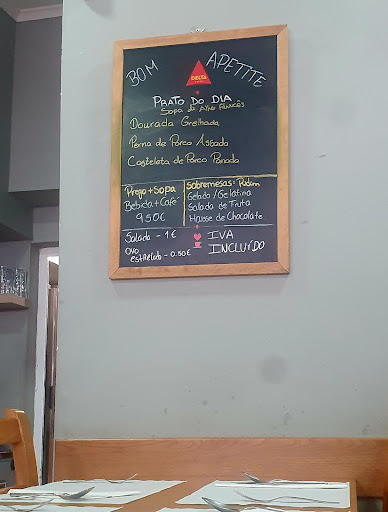 BOM APETITE
DELTA
PRATO DO DIA
Sopa de Alho Francês
Dourada Grelhada
Perna de Porco Assada
Costeleta de Porco Panada
Prego + Sopa
Bebida + Café
9.50€
Sobremesas: Pudim
Gelado / Gelatina
Salada de Fruta
Mousse de Chocolate
Salada - 1€
OVO
ESTRELADO - 0.50€
IVA
INCLUÍDO